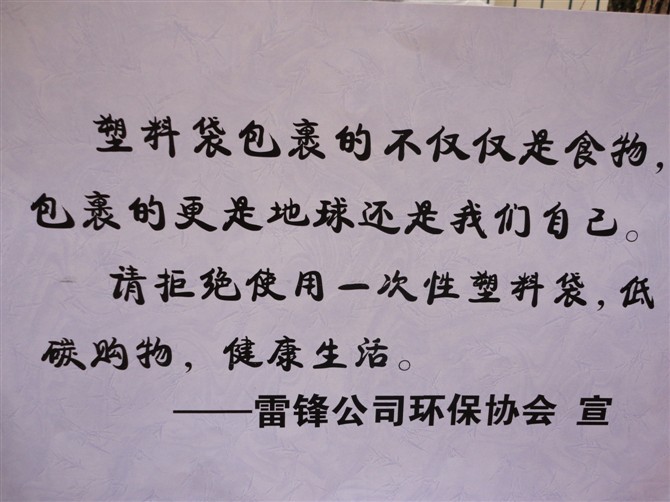 塑料袋包裹的不仅仅是食物，
包裹的更是地球还是我们自己。
请拒绝使用一次性塑料袋，低
碳购物，健康生活。
——雷锋公司环保协会 宣